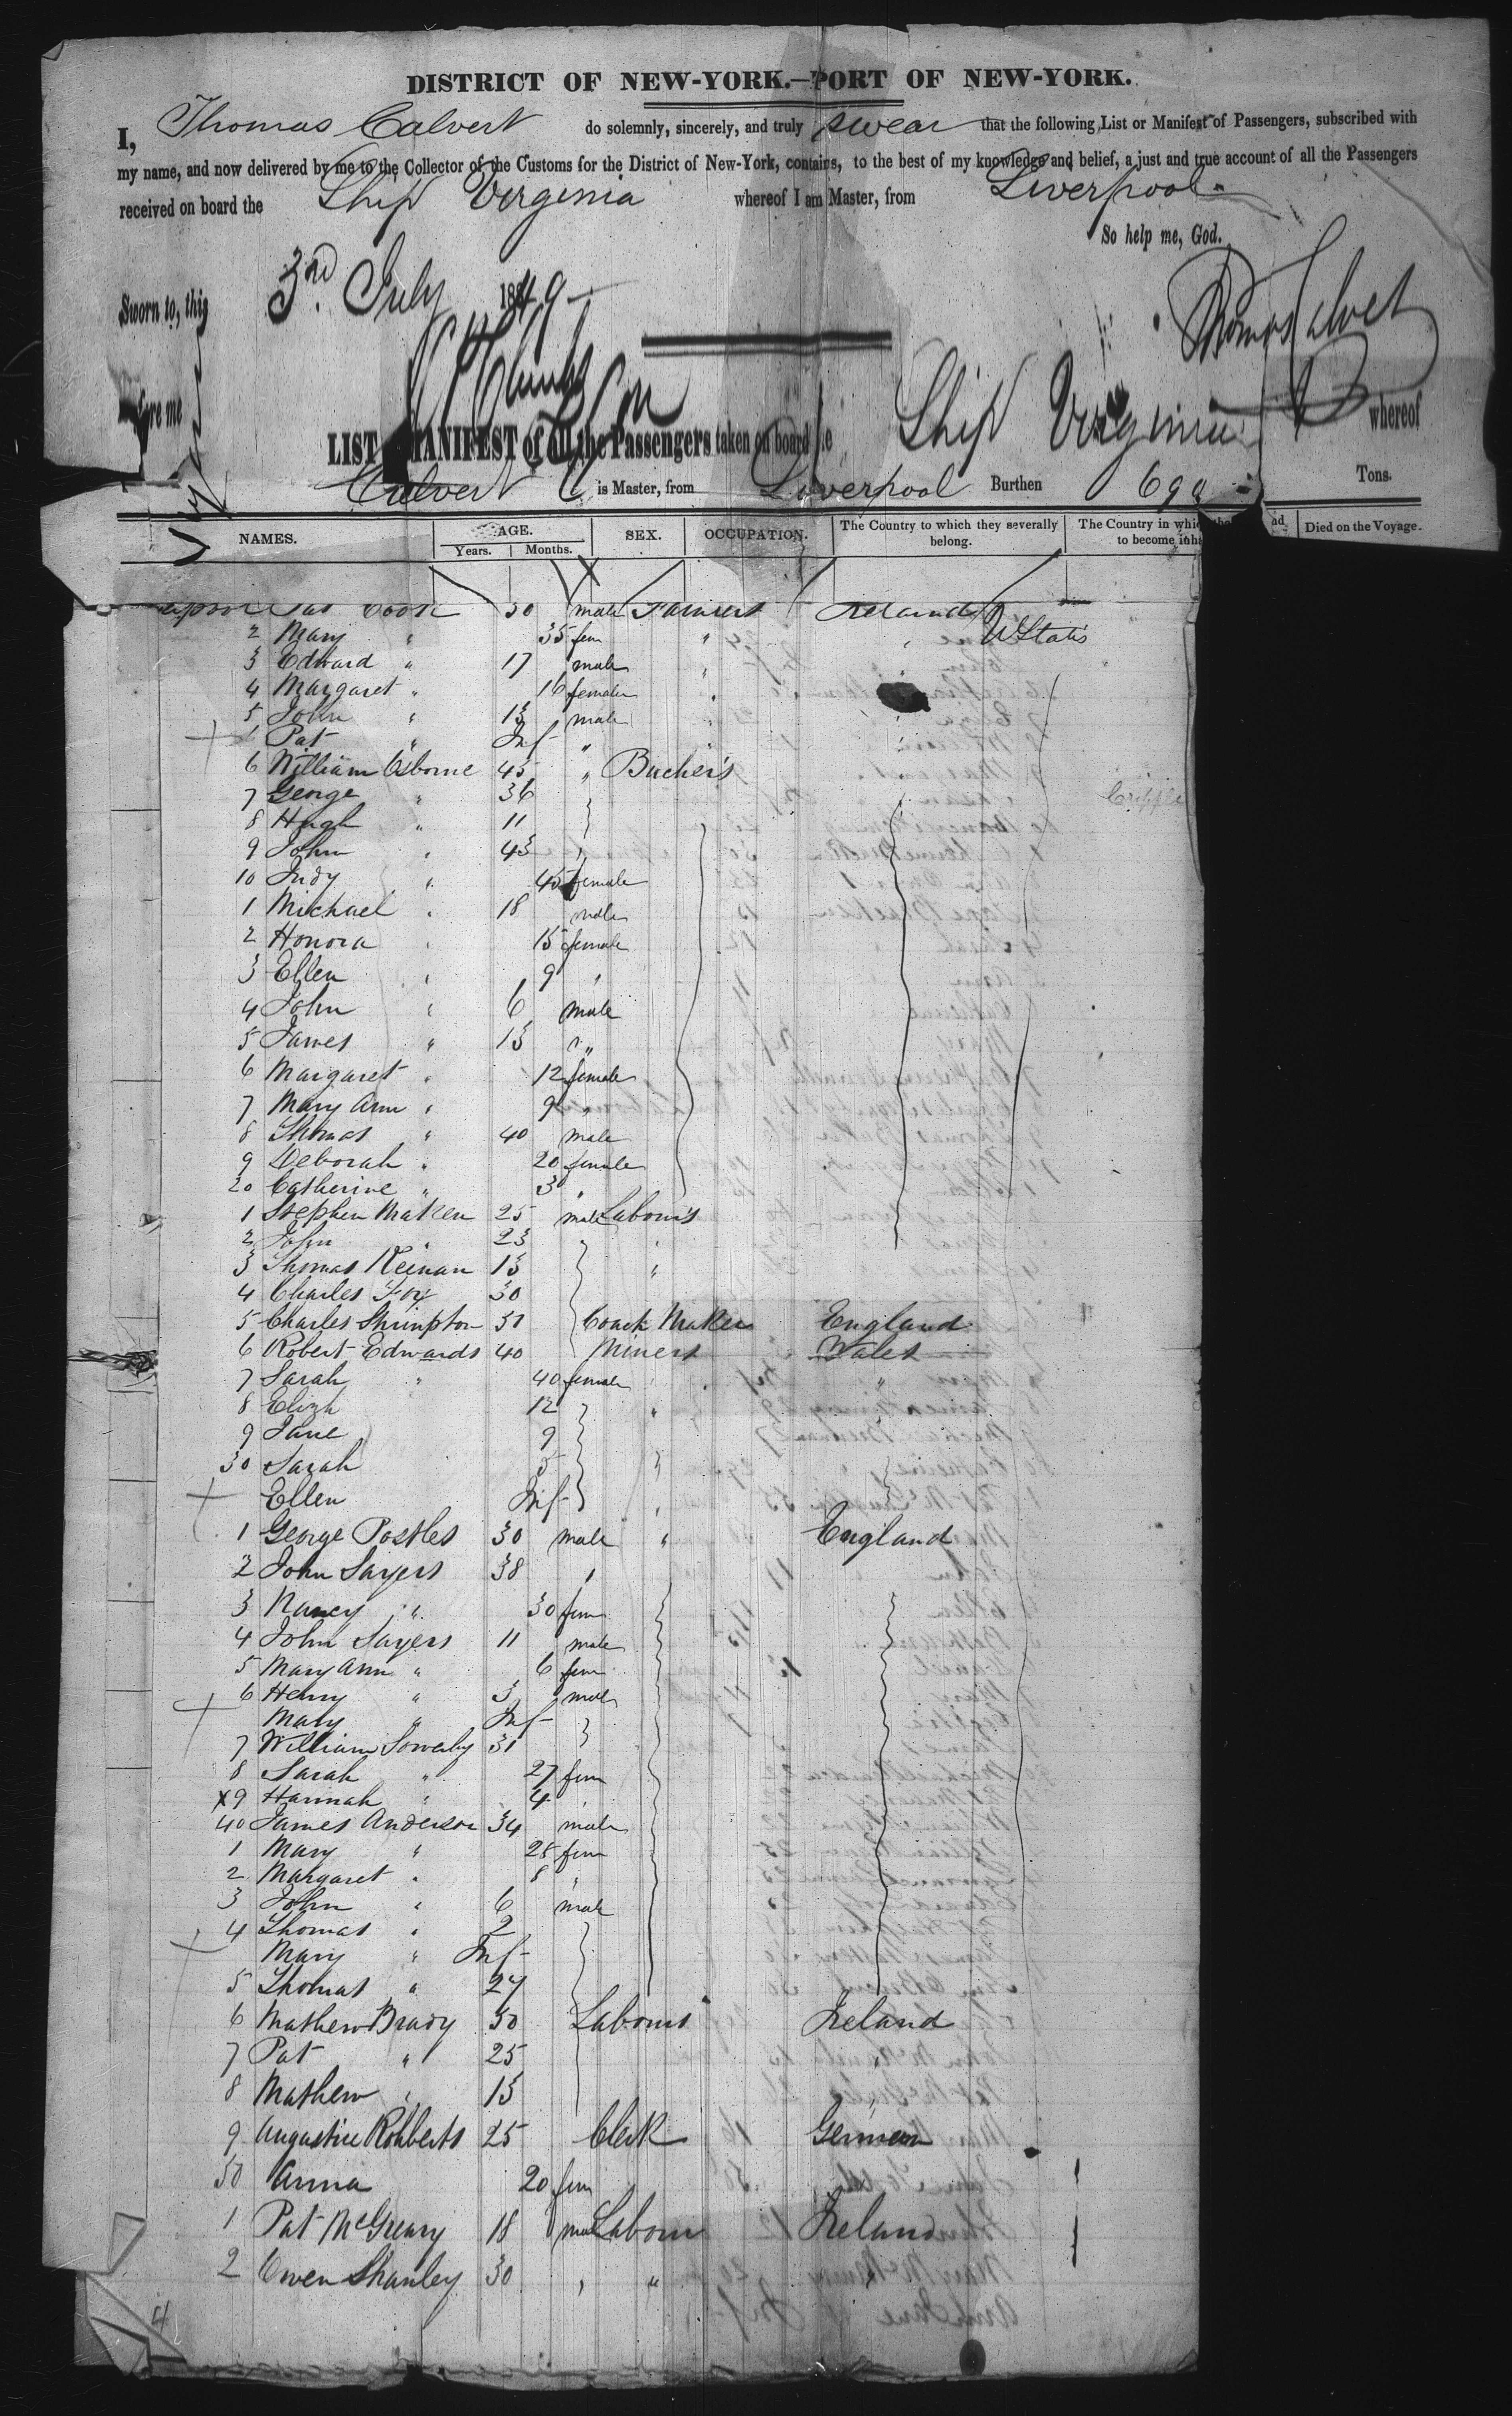 DISTRICT OF NEW-YORK.—PORT OF NEW-YORK.
I, Thomas Calvert do solemnly, sincerely, and truly swear that the following List or Manifest of Passengers, subscribed with
my name, and now delivered by me to the Collector of the Customs for the District of New-York, contains, to the best of my knowledge and belief, a just and true account of all the Passengers
received on board the Ship Virginia whereof I am Master, from Liverpool
So help me, God.
Sworn to, this 3rd July 1849
Thomas Calvert
LIST MANIFEST of all the Passengers taken on board Ship Virginia whereof
Calvert is Master, from Liverpool Burthen Tons.
NAMES. AGE. SEX. OCCUPATION. The Country to which they severally The Country in Died on the Voyage.
Years. Months. belong. to become
Cook 30 male Farmers Ireland
2 Mary " 35 fem " U States
3 Edward " 17 male "
4 Margaret " 16 female "
5 John " 13 male
Pat " Inf "
6 William Osborne 45 " Bucher's
7 George " 36 Cripple
8 Hugh " 11
9 John " 43
10 Judy " 45 female
1 Michael " 18 male
2 Honora " 15 female
3 Ellen " 9 "
4 John " 6 male
5 James " 13 "
6 Margaret " 12 female
7 Mary Ann " 9 "
8 Thomas " 40 male
9 Deborah " 20 female
20 Catherine " 3 "
1 Stephen Maken 25 male Labours
2 John " 23 "
3 Thomas Keenan 13 "
4 Charles Fox 30
5 Charles Shrimpton 30 Coach Maker England
6 Robert Edwards 40 Miners Wales
7 Sarah " 40 female "
8 Eliza 12 "
9 Jane 9
30 Sarah 5
Ellen Inf
1 George Postles 30 male " England
2 John Sayers 38 "
3 Nancy " 30 fem
4 John Sayers 11 male
5 Mary Ann " 6 fem
6 Henry " 3 male
Mary " Inf
7 William Sowerby 31
8 Sarah " 27 fem
x9 Hannah " 4
40 James Anderson 34 male
1 Mary " 25 fem
2 Margaret " 8 "
3 John " 6 male
4 Thomas " 2
Mary " Inf
5 Thomas " 27
6 Mathew Brady 30 Labours Ireland
7 Pat " 25 "
8 Mathew " 13
9 Augustice Rohberts 25 Clerk German
50 Anna 20 fem
1 Pat McGreary 18 male Labour Ireland
2 Owen Shanley 30 " "
4